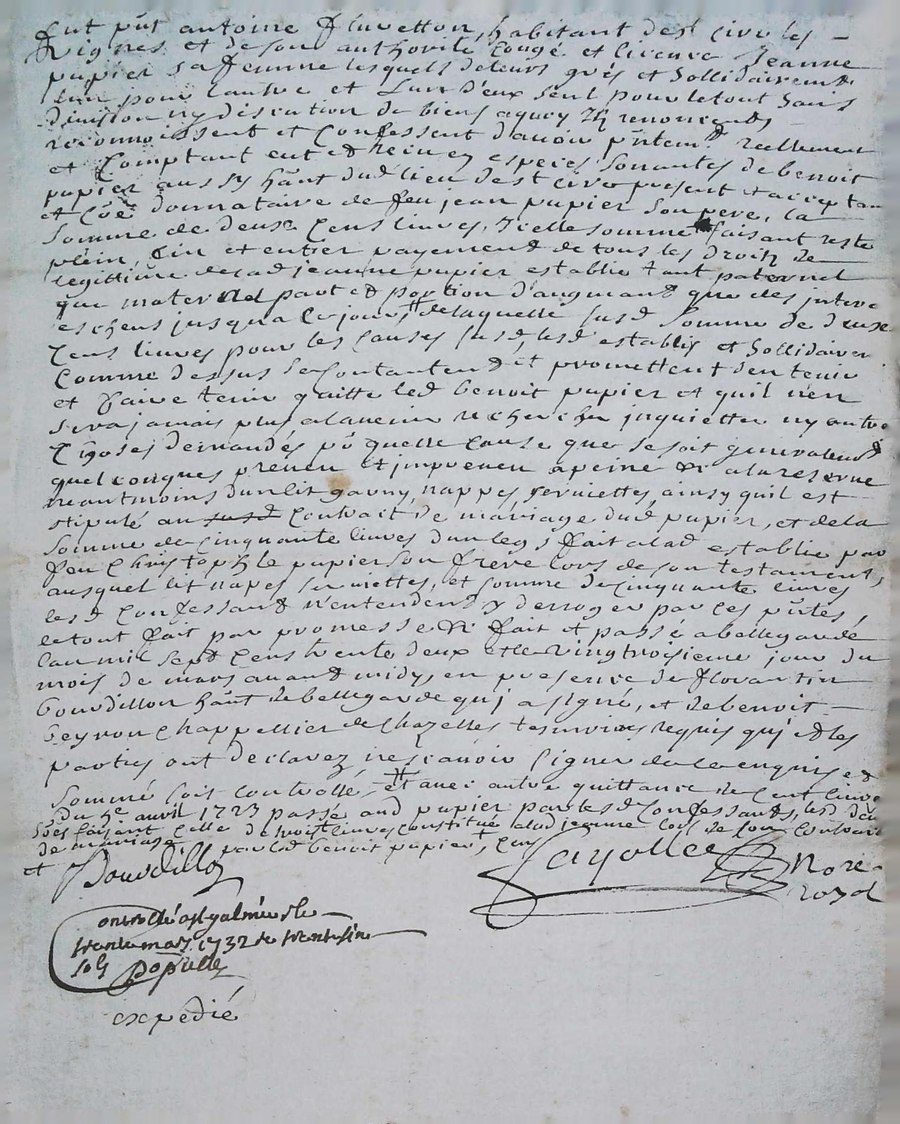 fut pñt antoine fluvetton, habitant de st Ciro les
Vignes et de son authorité Congé et licence Jeanne
papier sa femme lesquels de leurs grés et sollidairemt
l'un pour l'autre et l'un d'eux seul pour le tout sans
division ny discution de biens aquoy Ils renoncent,
reconnoissent et Confessent d'avoir pñtemt. reellement
et Comptant eut et receu en especes sonantes de benoit
papier aussy hant dud lieu de st Ciro present et acceptan
et Coe donnataire de feu jean papier son pere, la
somme de deux Cens livres, Icelle somme faisant reste
plein, fin et entier payement de tous les droits de
legittime de lad jeanne papier establie tant paternel
que maternel part et portion d'augmant que des interes
eschens jusqu'a Ce jour # de laquelle susd somme de deux
Cens livres pour les Causes susd, lesd establis et sollidairen
Comme dessus se Contantent et promettent s'en tenir
et faire tenir quitte led benoit papier et qu'il n'en
sera jamais plus a l'avenir recherché inquietter ny autre
Choses demandés po quelle cause que se soit generalemt
quelconques preveu et impreveu a peine &c a la reserve
neantmoins d'un lit garny, nappes serviettes, ainsy quil est
stipulé au susd Contrait de mariage dud papier, et de la
somme de Cinquante livres d'un legs fait a lad establie par
feu Christophle papier son frere lors de son testament,
ausquel lit napes serviettes, et somme de Cinquante livres
lesd Confessant n'entendent y derroger par ces pñtes,
le tout fait par promesse &c fait et passé a bellegarde
l'an mil sept Cens trente deux et le vingtroisieme jour du
mois de mars avant midy, en presence de florantin
bourdillon hant de bellegarde qui a signé, et de benoit
peyron Chappellier de Chazelles tesmoins requis qui et les
parties ont declarez ne scavoir signer de ce enquis et
sommé soit Controllé # et avec autre quittance de Cent livres
du 5e avril 1723 passé aud papier par lesd Confessants, lesd deux
de mariage Celle de trois livres constitué a lad jeanne lors de son Contrait
et par led benoit papier
Bourdillon
Fayolle Nore
royal
Controllé a st galmier le
trente mars 1732 re trentesix
sols
Popule
expedié